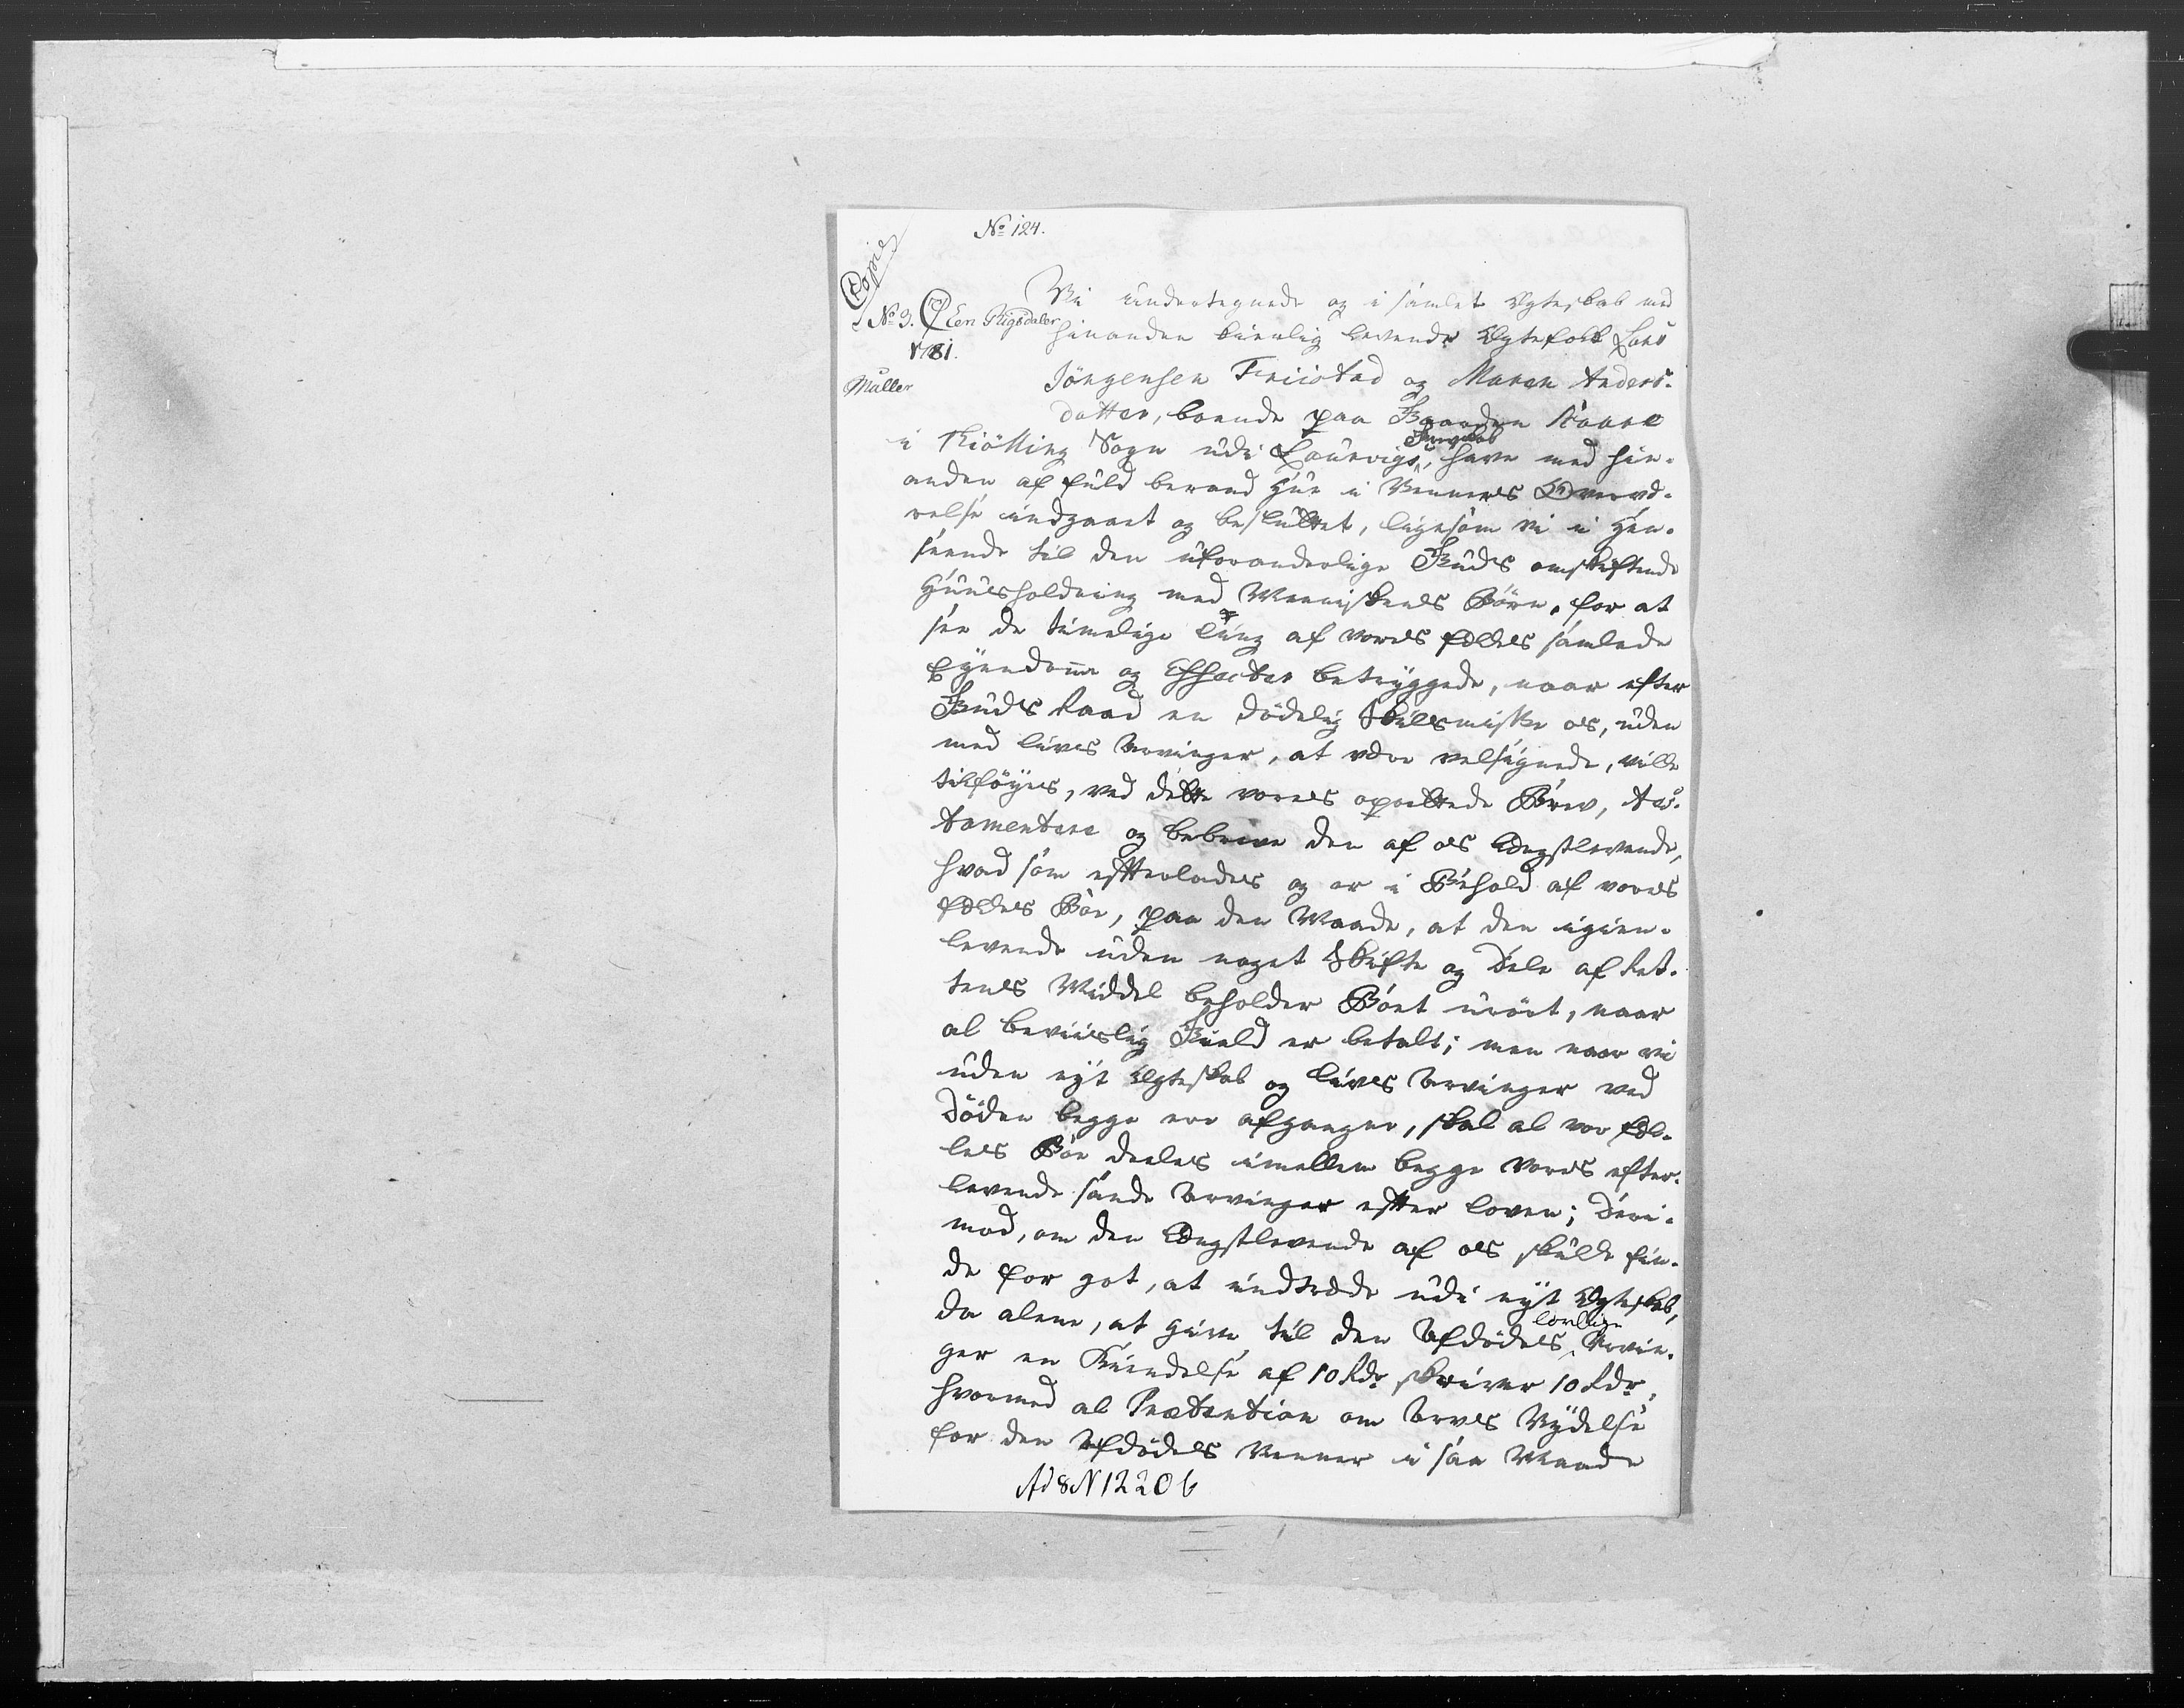 No 124.
Copie
No 3. C7 Een Rigsdaler
1781.
Müller
Vi undertegnede og i samlet Ægteskab med
hinanden kierlig levende Ægtefolk Lars
Jörgensen Friistad og Maren Anders-
datter, boende paa Gaarden Kaare
i Kiölling Sogn udi Laurvigs Grevskab, have med hin-
anden af fuld beraad Hue i Venners Overvæ-
relse indgaaet og besluttet, ligesom vi i Hen-
seende til den uforanderlige Guds omskiftende
Huusholdning med Menniskenes Börn, for at
see de timelige Ting af vores fælles samlede
Eyendomme og Effecter betryggede, naar efter
Guds Raad en dödelig Skilsmisse os, uden
med Livs Arvinger, at være velsignede, ville
tilföyes, ved dette vores oprettede Brev, tes-
tamentere og bebreve den af os Længstlevende,
hvad som efterlades og er i Behold af vores
fælles Boe, paa den Maade, at den igien-
levende uden noget Skifte og Dele af Ret-
tens Middel beholder Boet urört, naar
al beviislig Gield er betalt; men naar vi
uden nyt Ægteskab og Livs Arvinger ved
Döden begge ere afgangne, skal al vor fæl-
les Boe deeles imellem begge vores efter-
levende sande Arvinger efter Loven; Deri-
mod, om den Længstlevende af os skulde fin-
de for got, at indtræde udi nyt Ægteskab,
da alene, at give til den Afdödes lovlige Arvin-
ger en Kiendelse af 10 Rdr skriver 10 Rdr,
hvormed al Prætention om Arves Nydelse
for den Afdödes Venner i saa Maade
Ad 8 N 1220 b